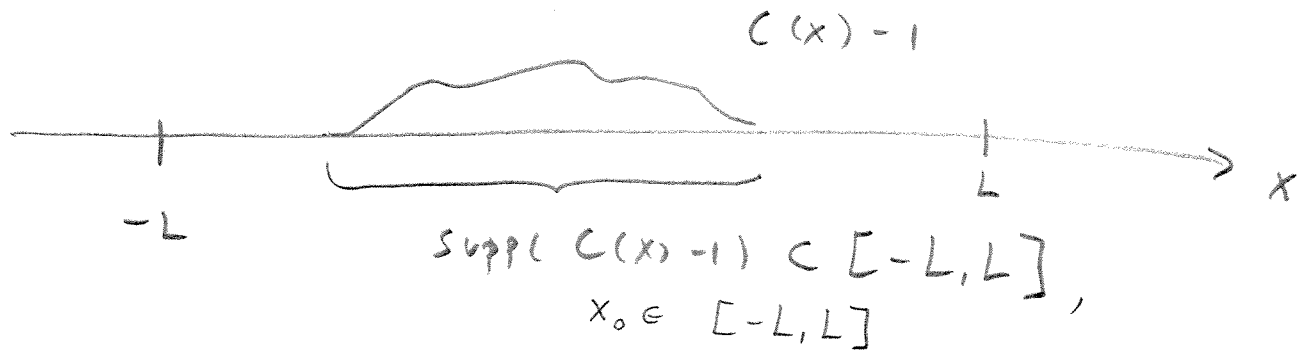 C(x) - 1
-L
L
x
supp( C(x) - 1 ) ⊂ [-L, L],
x₀ ∈ [-L, L]